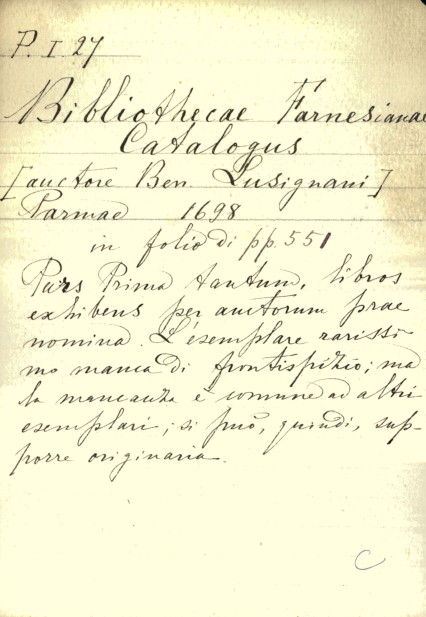 P. I 27
Bibliothecae Farnesianae
Catalogus
[auctore Ben. Lusignani]
Parmae 1698
in folio di pp. 551
Pars Prima tantum, libros
exhibens per auctorum prae
nomina. L'esemplare rarissi
mo manca di frontispizio; ma
la mancanza è comune ad altri
esemplari; si può, quindi, sup-
porre originaria.
C